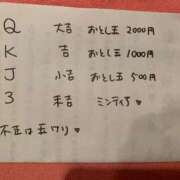 Q 大吉 おとし玉 2000円
K 吉 おとし玉 1000円
J 小吉 おとし玉 500円
3 末吉 ミンティア♥
不正は玉ワリ♥